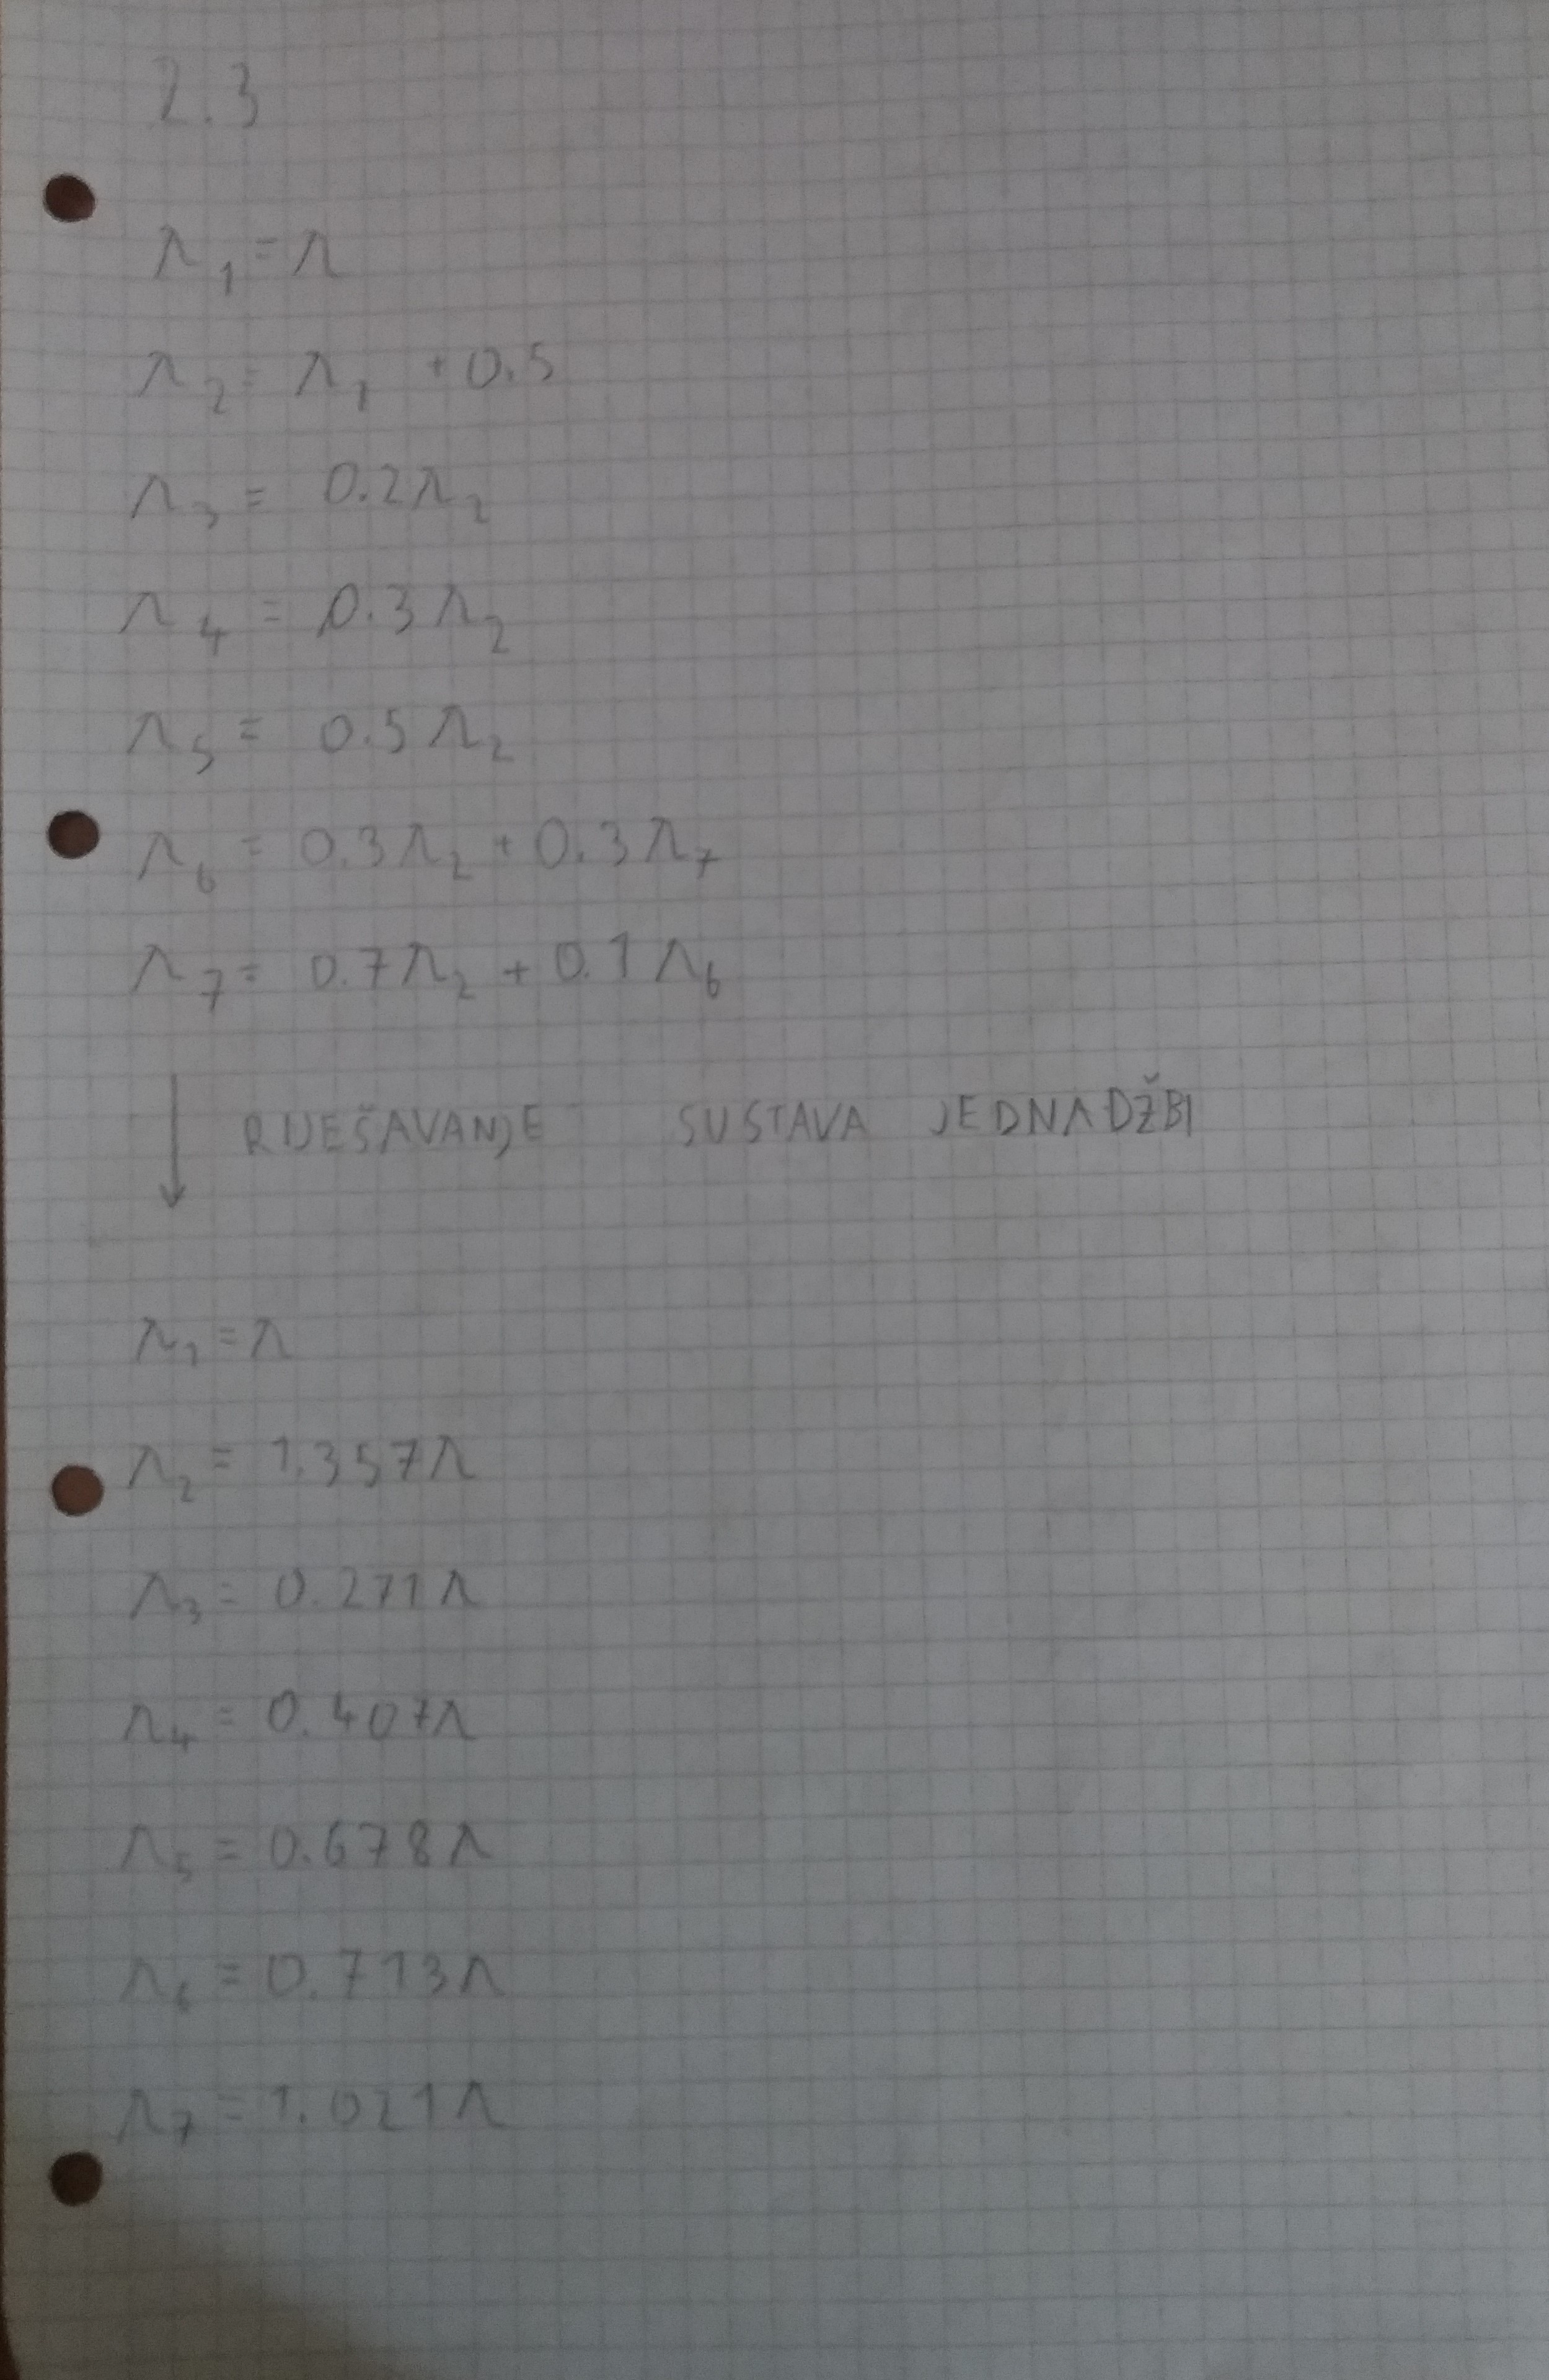 2.3
λ₁ = λ
λ₂ = λ₁ + 0.5
λ₃ = 0.2λ₂
λ₄ = 0.3λ₂
λ₅ = 0.5λ₂
λ₆ = 0.3λ₂ + 0.3λ₇
λ₇ = 0.7λ₂ + 0.1λ₆
↓ RIJEŠAVANJE SUSTAVA JEDNADŽBI
λ₁ = λ
λ₂ = 1.357λ
λ₃ = 0.271λ
λ₄ = 0.407λ
λ₅ = 0.678λ
λ₆ = 0.713λ
λ₇ = 1.021λ